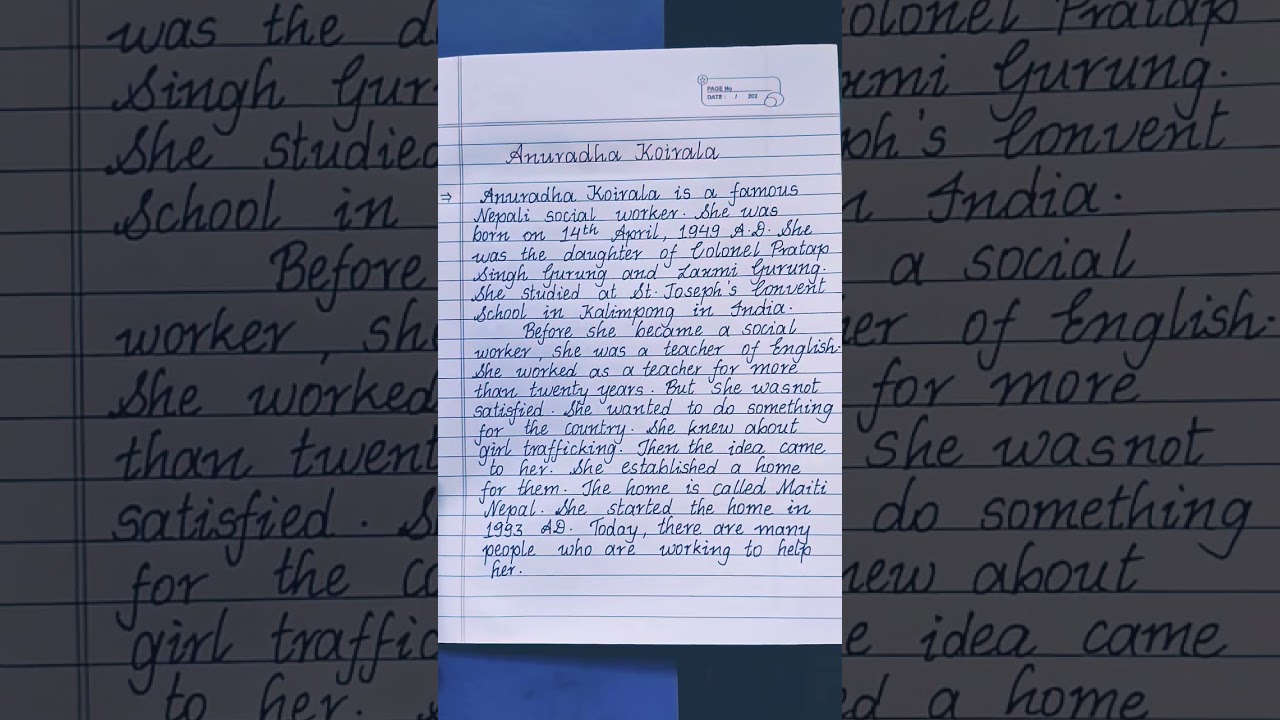 PAGE No
DATE : / 202
Anuradha Koirala
⇒ Anuradha Koirala is a famous
Nepali social worker. She was
born on 14th April, 1949 A.D. She
was the daughter of Colonel Pratap
Singh Gurung and Laxmi Gurung.
She studied at St. Joseph's Convent
School in Kalimpong in India.
Before she became a social
worker, she was a teacher of English.
She worked as a teacher for more
than twenty years. But she wasnot
satisfied. She wanted to do something
for the country. She knew about
girl trafficking. Then the idea came
to her. She established a home
for them. The home is called Maiti
Nepal. She started the home in
1993 AD. Today, there are many
people who are working to help
her.
was the d
Singh Gur
She studied
School in
Before
worker, sh
She worked
than twent
satisfied. S
for the co
girl traffic
to her.
olonel Pratap
xmi Gurung.
ph's Convent
n India.
a social
er of English.
for more
she wasnot
do something
new about
e idea came
d a home